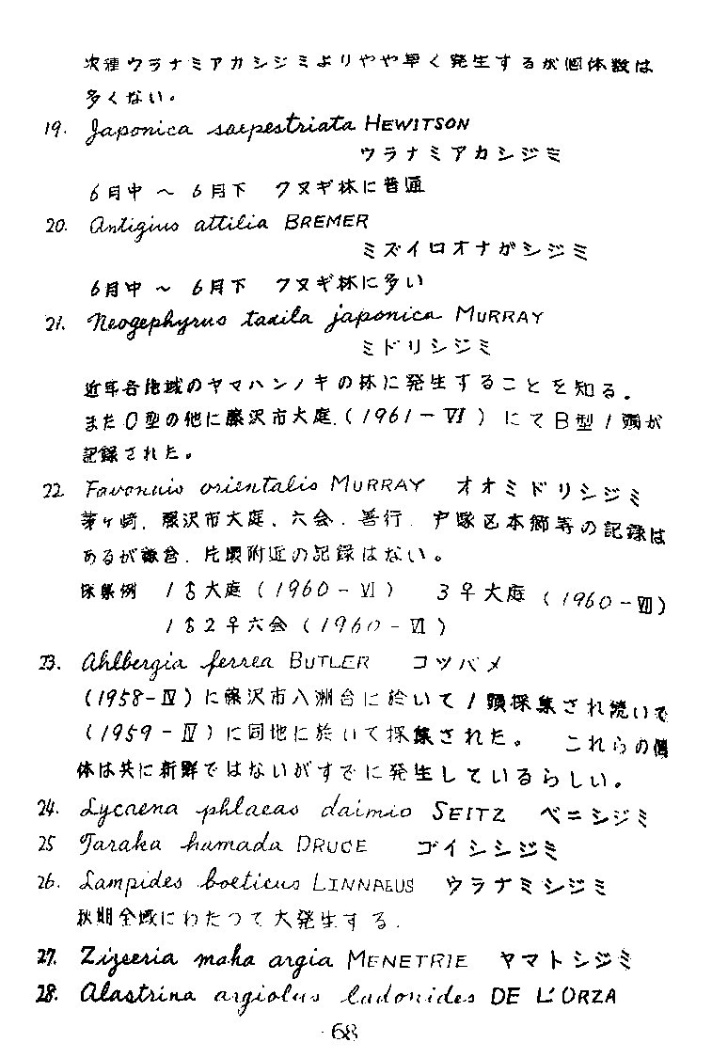 次種ウラナミアカシジミよりやや早く発生するが個体数は
多くない。
19. Japonica saepestriata HEWITSON
ウラナミアカシジミ
6月中 ～ 6月下 クヌギ林に普通
20. Antigius attilia BREMER
ミズイロオナガシジミ
6月中 ～ 6月下 クヌギ林に多い
21. Neogephyrus taxila japonica MURRAY
ミドリシジミ
近年各地域のヤマハンノキの林に発生することを知る.
また O型の他に藤沢市大庭.(1961-Ⅵ) にて B型 1頭が
記録された。
22 Favonius orientalis MURRAY オオミドリシジミ
茅ヶ崎. 藤沢市大庭. 六会. 善行. 戸塚区本郷等の記録は
あるが鎌倉. 片瀬附近の記録はない。
採集例 1♂大庭 (1960-Ⅵ) 3♀大庭 (1960-Ⅶ)
1♂2♀六会 (1960-Ⅵ)
23. Ahlbergia ferrea BUTLER コツバメ
(1958-Ⅳ) に藤沢市八洲台に於いて 1頭採集され続いて
(1959-Ⅳ) に同地に於いて採集された。 これらの個
体は共に新鮮ではないがすでに発生しているらしい。
24. Lycaena phlaeas daimio SEITZ ベニシジミ
25 Taraka hamada DRUCE ゴイシシジミ
26. Lampides boeticus LINNAEUS ウラナミシジミ
秋期全域にわたつて大発生する.
27. Zizeeria maha argia MENETRIE ヤマトシジミ
28. Alastrina argiolus ladonides DE L'ORZA
68